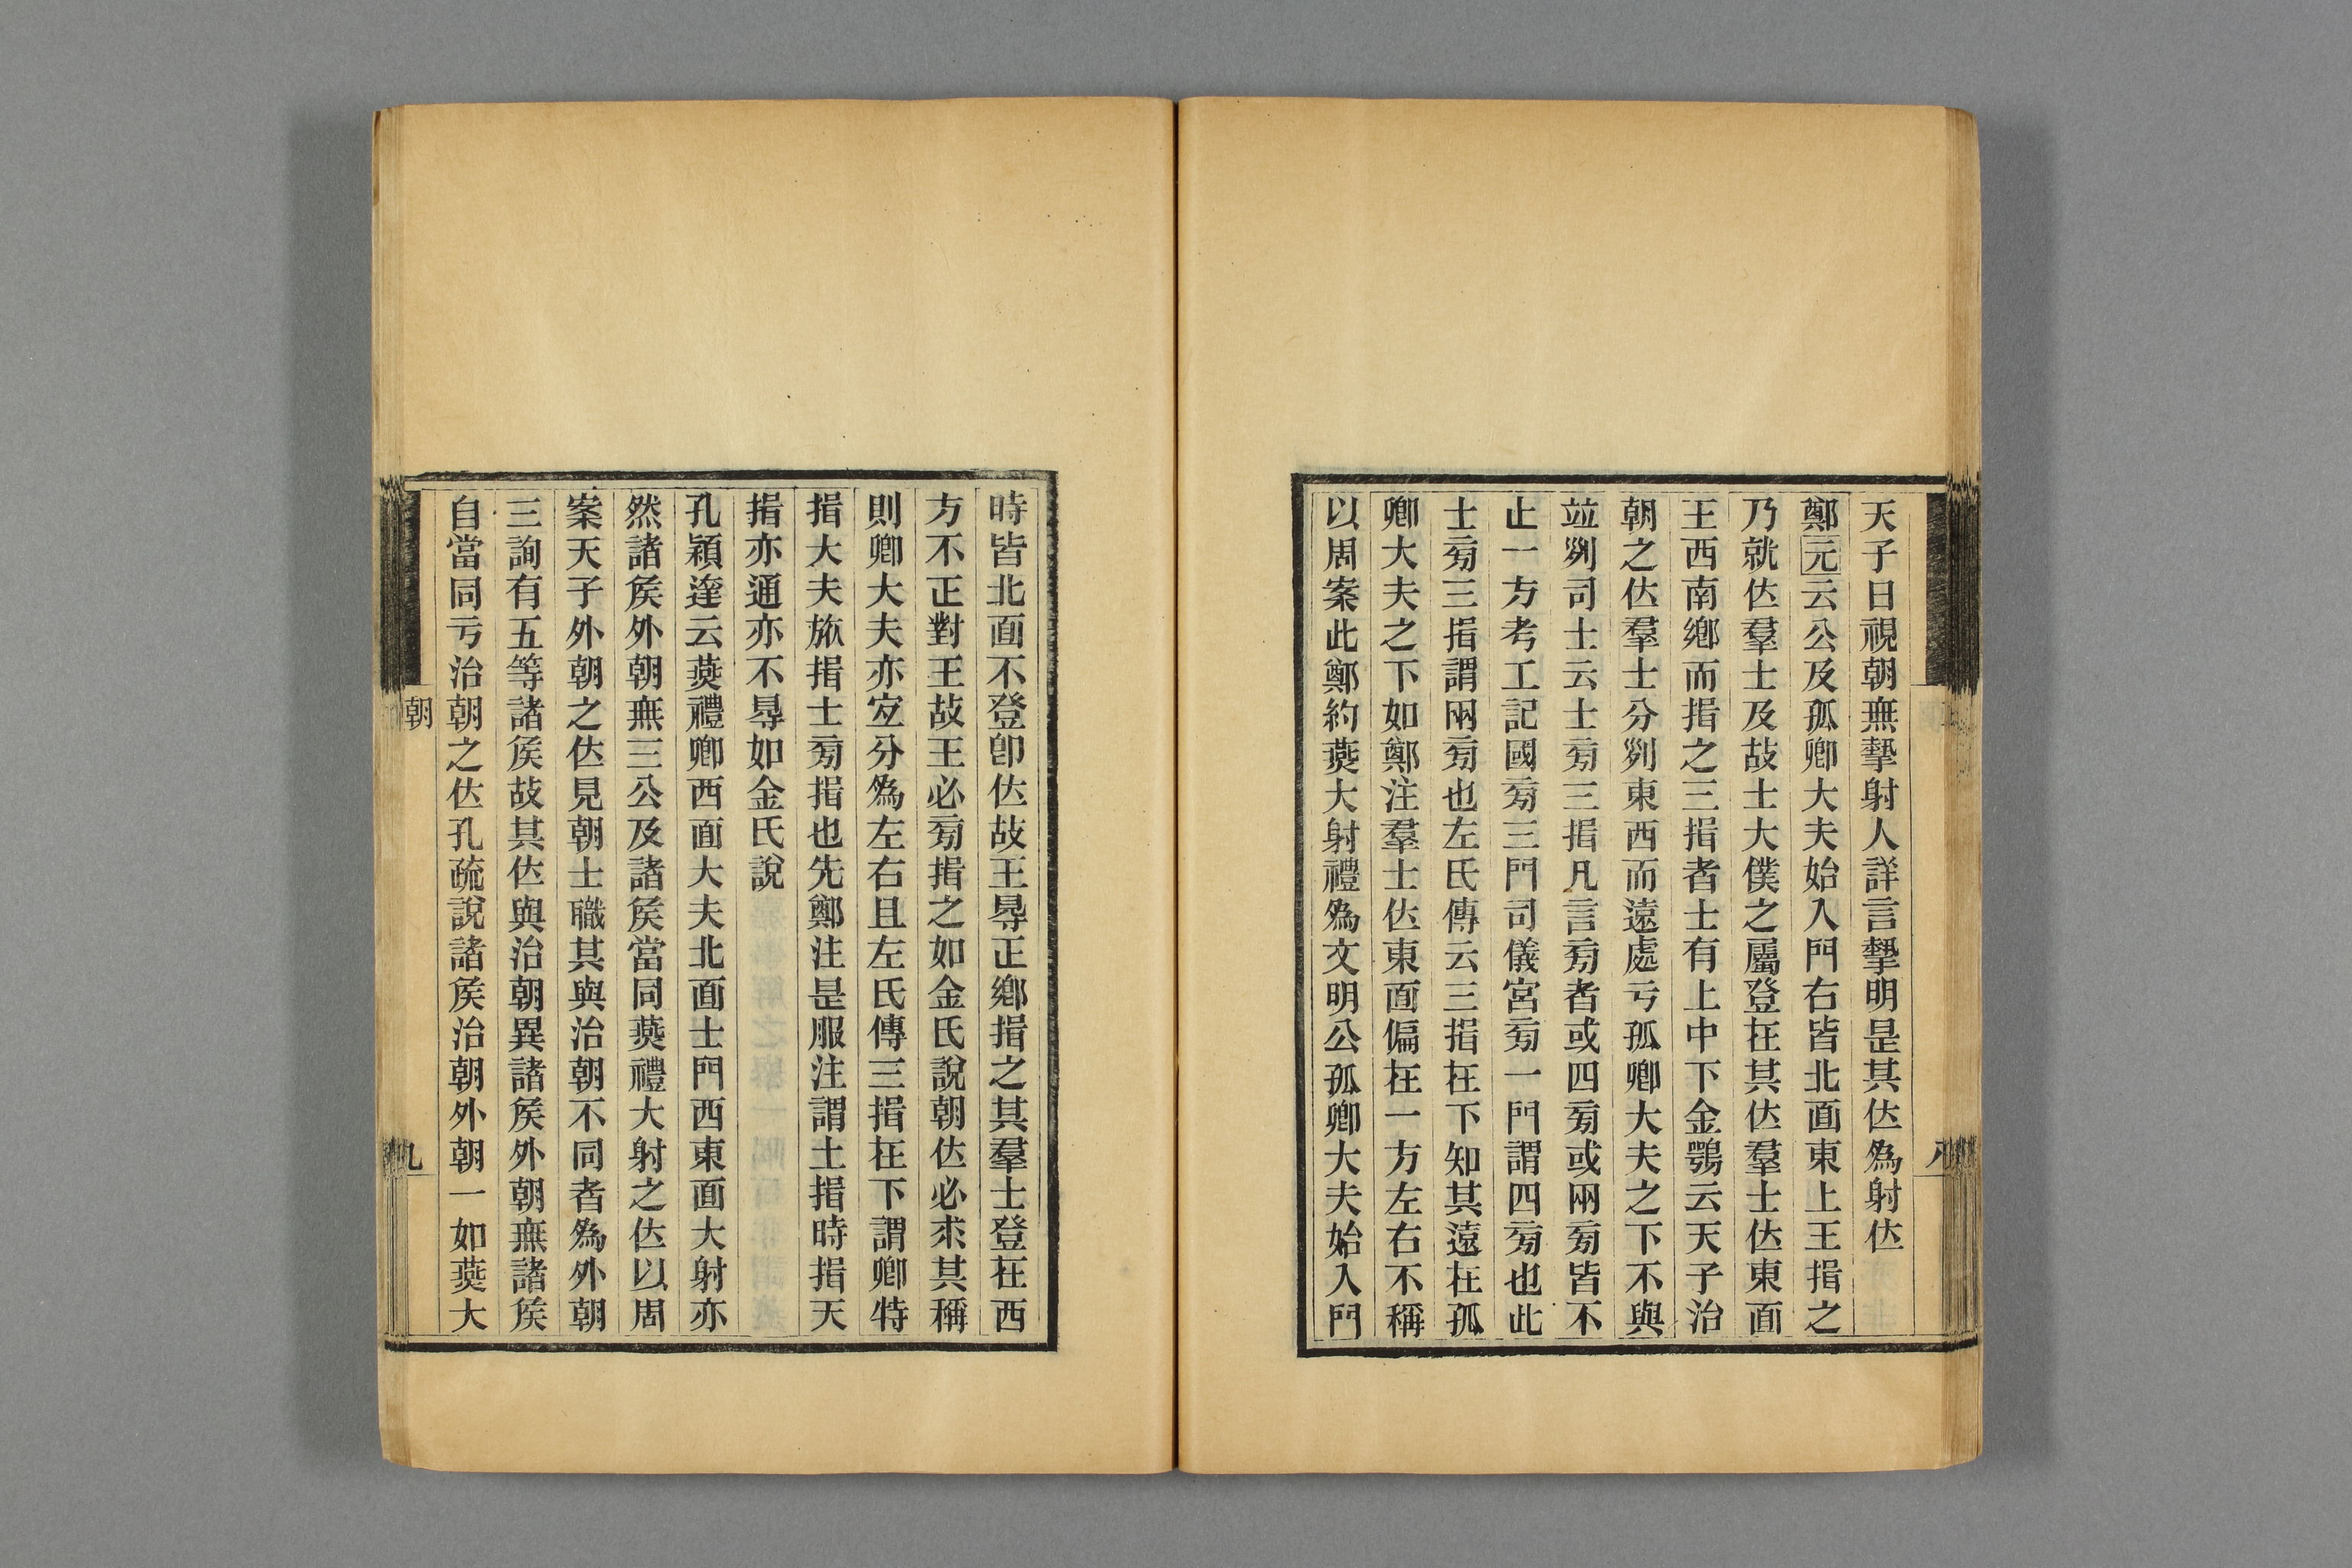 天子日視朝橆摯射人詳言摯明是其㑀爲射㑀
鄭元云公及孤卿大夫始入門右皆北面東上王揖之
乃就㑀羣士及故士大僕之屬登在其㑀羣士㑀東面
王西南鄉而揖之三揖者士有上中下金鶚云天子治
朝之㑀羣士分𠛱東西而遠處亏孤卿大夫之下不與
竝𠛱司士云士㫄三揖凡言㫄者或四㫄或兩㫄皆不
止一方考工記國㫄三門司儀宮㫄一門謂四㫄也此
士㫄三揖謂兩㫄也左氏傳云三揖在下知其遠在孤
卿大夫之下如鄭注羣士㑀東面偏在一方左右不稱
以周案此鄭約燕大射禮爲文明公孤卿大夫始入門
時皆北面不登卽㑀故王㝵正鄉揖之其羣士登在西
方不正對王故王必㫄揖之如金氏說朝㑀必求其稱
則卿大夫亦宐分爲左右且左氏傳三揖在下謂卿特
揖大夫旅揖士㫄揖也先鄭注是服注謂土揖時揖天
揖亦通亦不㝵如金氏說
孔穎達云燕禮卿西面大夫北面士門西東面大射亦
然諸矦外朝橆三公及諸矦當同燕禮大射之㑀以周
案天子外朝之㑀見朝士職其與治朝不同者爲外朝
三詢有五等諸矦故其㑀與治朝異諸矦外朝橆諸矦
自當同亏治朝之㑀孔疏說諸矦治朝外朝一如燕大
朝
九